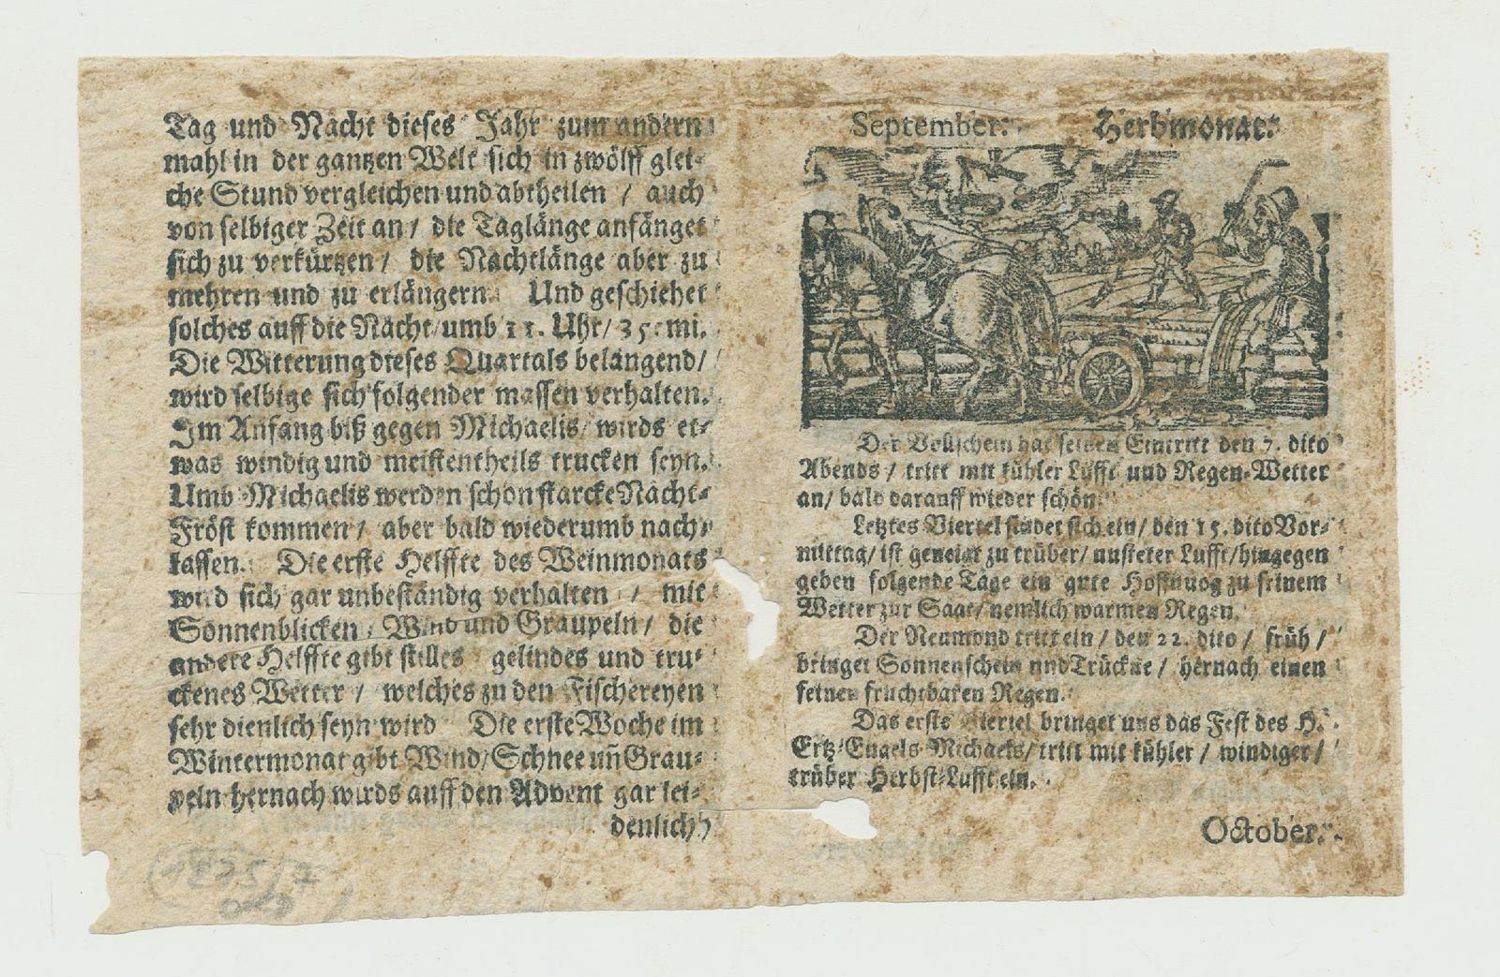 Tag und Nacht dieses Jahr zum andern
mahl in der gantzen Welt sich in zwölff glei-
che Stund vergleichen und abtheilen / auch
von selbiger Zeit an / die Taglänge anfänget
sich zu verkürtzen / die Nachtlänge aber zu
mehren und zu erlängern. Und geschiehet
solches auff die Nacht / umb 11. Uhr / 35. mi.
Die Witterung dieses Quartals belangend /
wird selbige sich folgender massen verhalten.
Im Anfang biß gegen Michaelis / wirds et-
was windig und meistentheils trucken seyn.
Umb Michaelis werden schon starcke Nacht-
Fröst kommen / aber bald wiederumb nach-
lassen. Die erste Helffte des Weinmonats
wird sich gar unbeständig verhalten / mit
Sonnenblicken / Wind und Graupeln / die
andere Helffte gibt stilles gelindes und tru-
ckenes Wetter / welches zu den Fischereyen
sehr dienlich seyn wird Die erste Woche im
Wintermonat gibt Wind / Schnee uñ Grau-
peln hernach wirds auff den Advent gar lei-
denlich
September. Herbmonat.
Der Vollschein hat seinen Eintritt den 7. dito
Abends / tritt mit kühler Lufft und Regen-Wetter
an / bald darauff wieder schön.
Letztes Viertel findet sich ein / den 15. dito Vor-
mittag / ist geneigt zu trüber / unsteter Lufft / hingegen
geben folgende Täge ein gute Hoffnuog zu feinem
Wetter zur Saat / nemlich warmen Regen.
Der Neumond tritt ein / den 22. dito / früh /
bringet Sonnenschein und Trückne / hernach einen
feinen fruchtbaren Regen.
Das erste Viertel bringet uns das Fest des H.
Ertz-Engels Michaels / tritt mit kühler / windiger /
trüber Herbst-Lufft ein.
October.